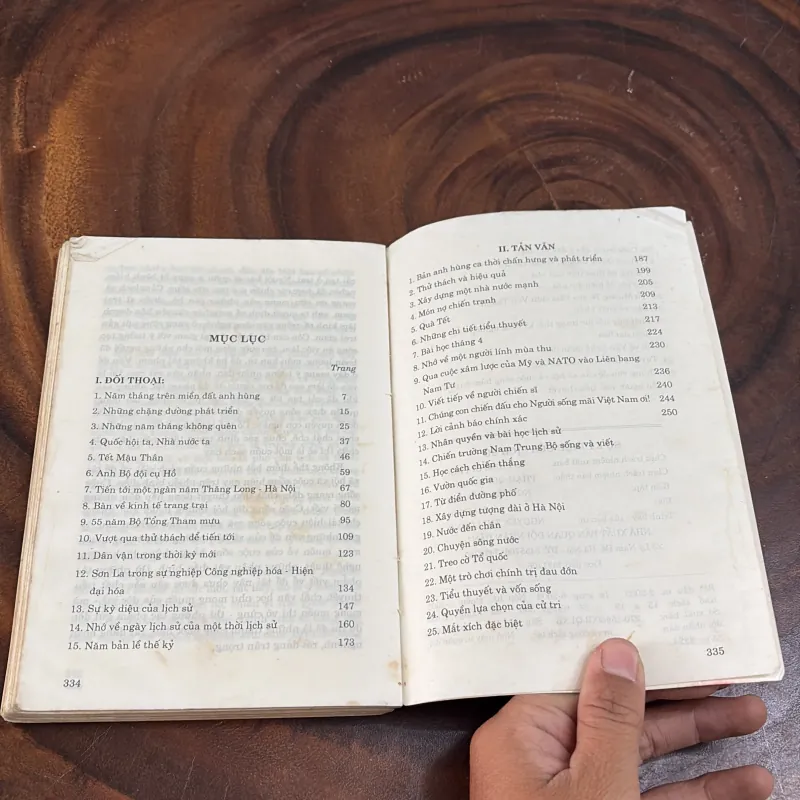 MỤC LỤC
Trang
I. ĐỐI THOẠI:
1. Năm tháng trên miền đất anh hùng 7
2. Những chặng đường phát triển 15
3. Những năm tháng không quên 25
4. Quốc hội ta, Nhà nước ta 37
5. Tết Mậu Thân 46
6. Anh Bộ đội cụ Hồ 59
7. Tiến tới một ngàn năm Thăng Long - Hà Nội 67
8. Bàn về kinh tế trang trại 80
9. 55 năm Bộ Tổng Tham mưu 95
10. Vượt qua thử thách để tiến tới 109
11. Dân vận trong thời kỳ mới 123
12. Sơn La trong sự nghiệp Công nghiệp hóa - Hiện
đại hóa 134
13. Sự kỳ diệu của lịch sử 147
14. Nhớ về ngày lịch sử của một thời lịch sử 160
15. Năm bản lề thế kỷ 173
334
II. TẢN VĂN
1. Bản anh hùng ca thời chấn hưng và phát triển 187
2. Thử thách và hiệu quả 199
3. Xây dựng một nhà nước mạnh 205
4. Món nợ chiến tranh 209
5. Quà Tết 213
6. Những chi tiết tiểu thuyết 217
7. Bài học tháng 4 224
8. Nhớ về một người lính mùa thu 230
9. Qua cuộc xâm lược của Mỹ và NATO vào Liên bang
Nam Tư 236
10. Viết tiếp về người chiến sĩ 240
11. Chúng con chiến đấu cho Người sống mãi Việt Nam ơi! 244
12. Lời cảnh báo chính xác 250
13. Nhân quyền và bài học lịch sử
14. Chiến trường Nam Trung Bộ sống và viết
15. Học cách chiến thắng
16. Vườn quốc gia
17. Từ điển đường phố
18. Xây dựng tượng đài ở Hà Nội
19. Nước đến chân
20. Chuyện sông nước
21. Treo cờ Tổ quốc
22. Một trò chơi chính trị đau đớn
23. Tiểu thuyết và vốn sống
24. Quyền lựa chọn của cử tri
25. Mắt xích đặc biệt
335